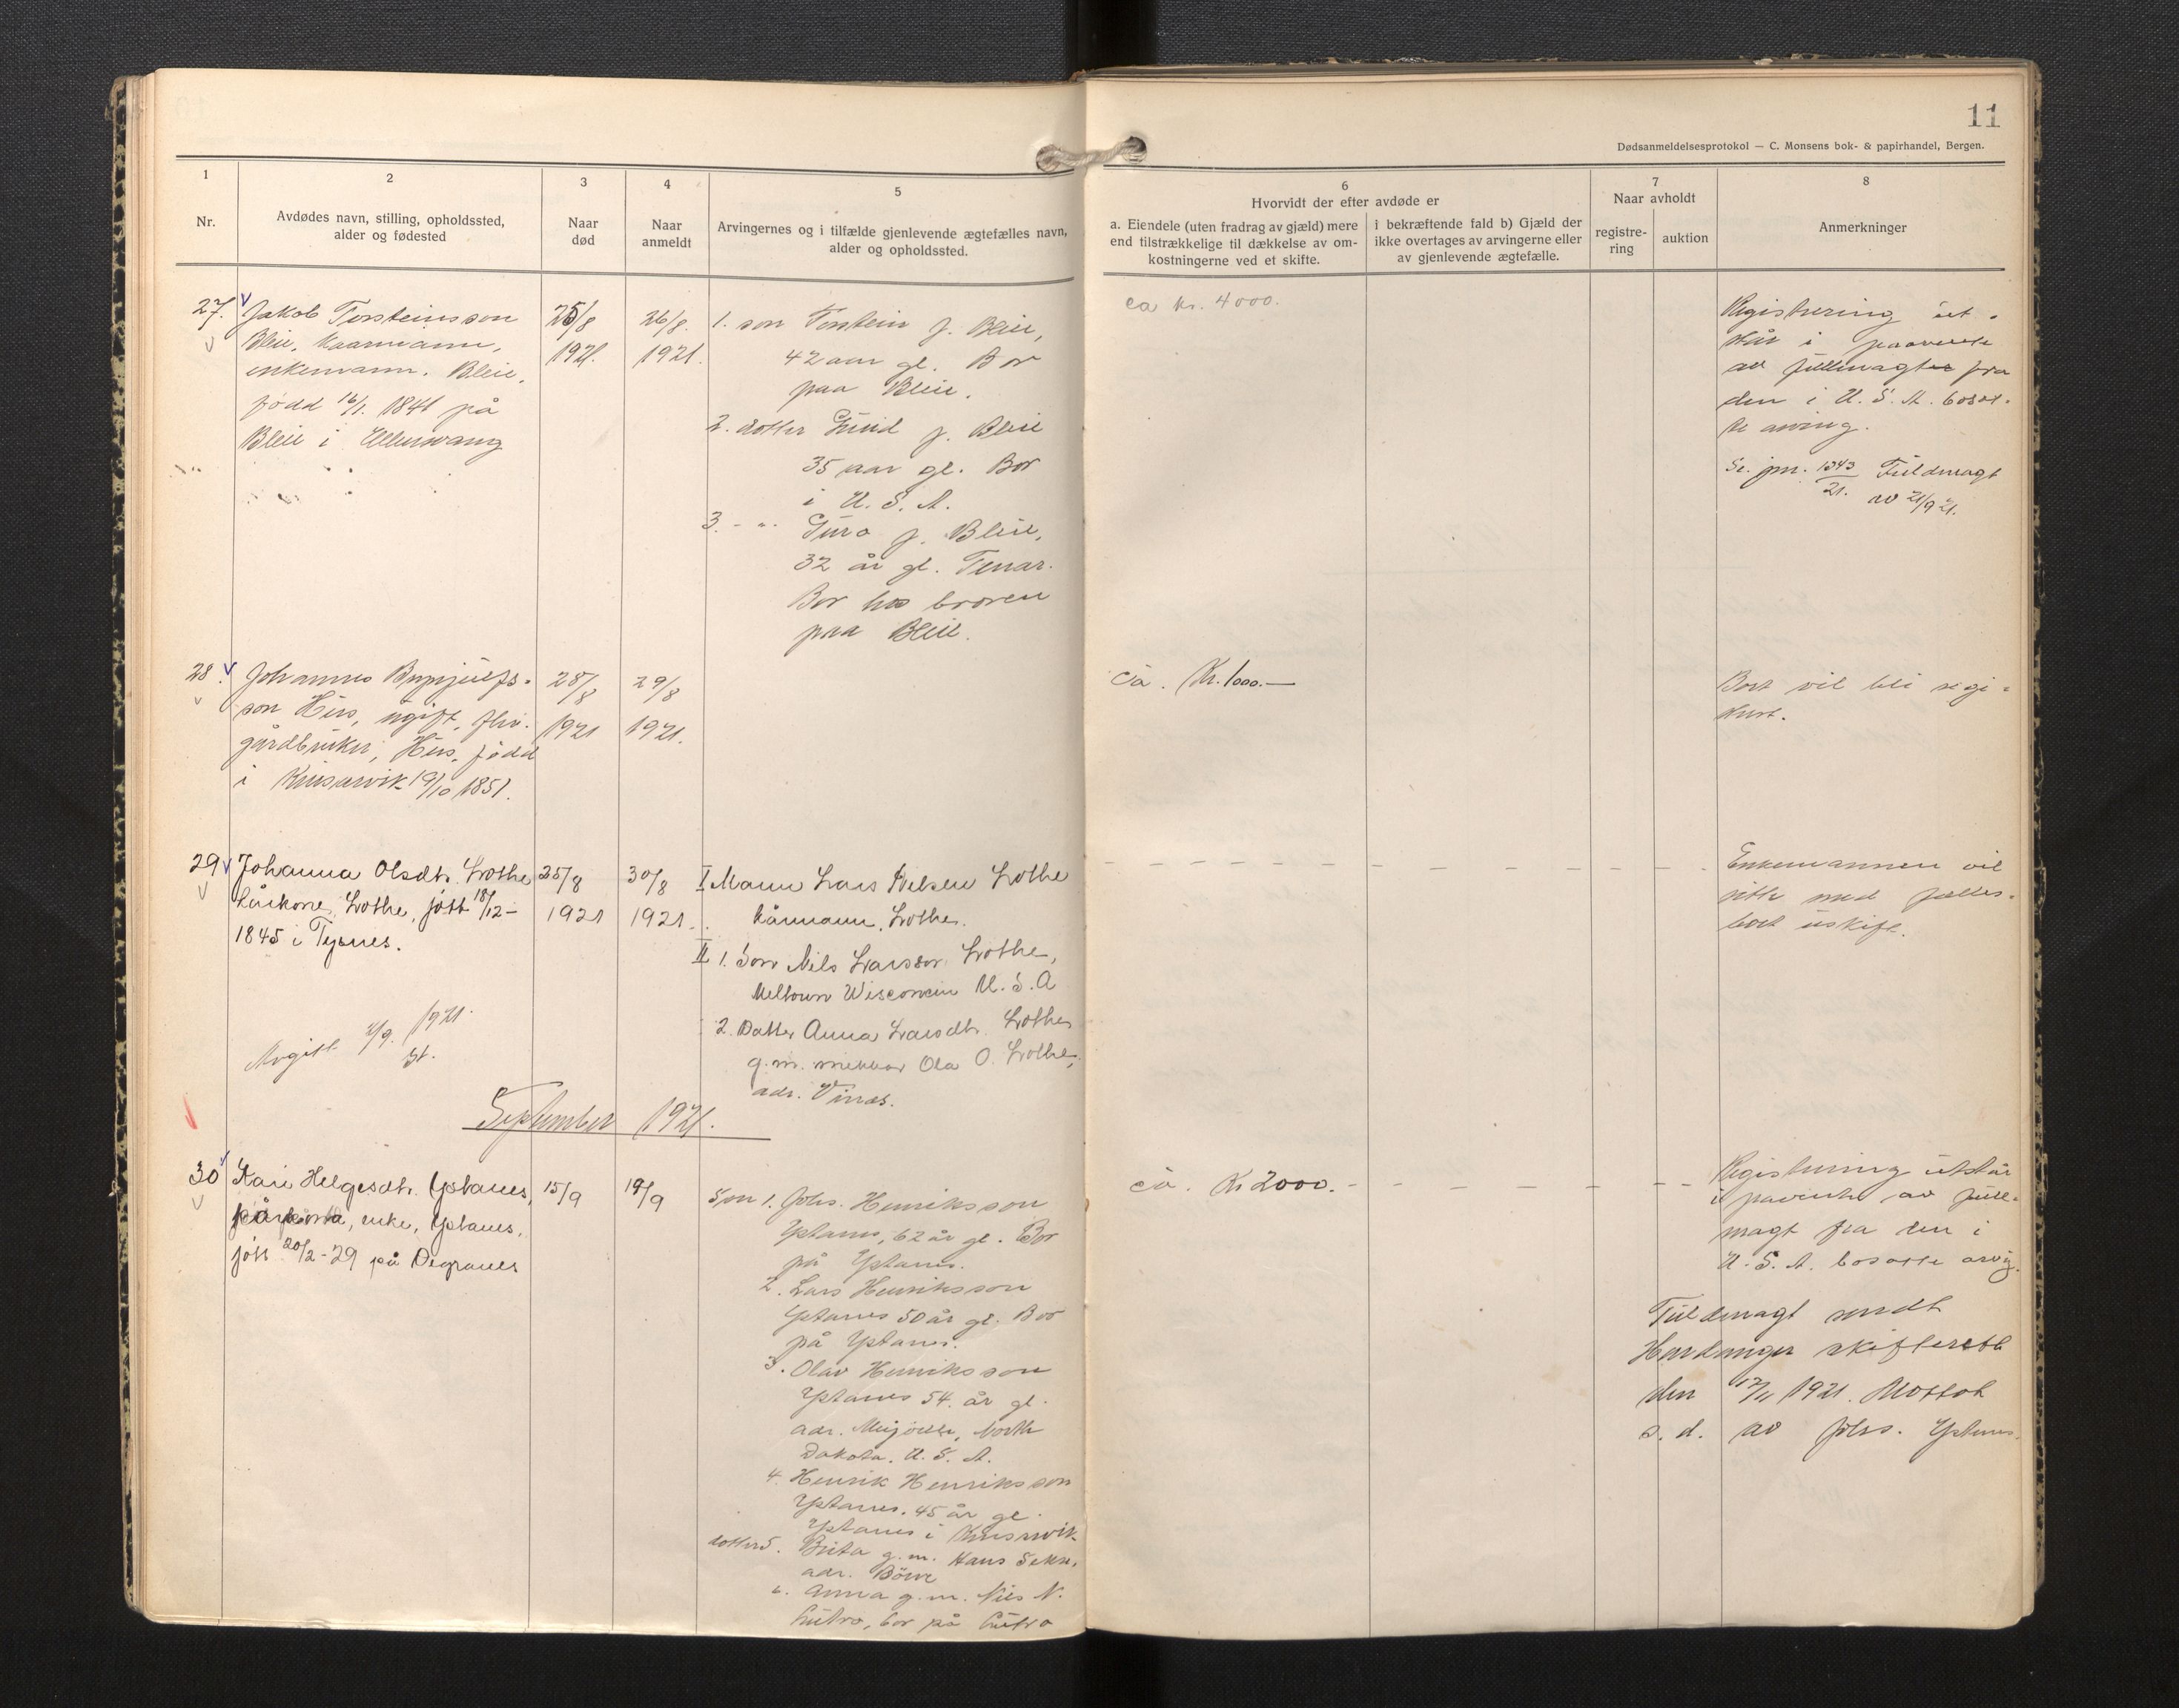 11
Dødsanmeldelsesprotokol — C. Monsens bok- & papirhandel, Bergen.
1
Nr.
2
Avdødes navn, stilling, opholdssted,
alder og fødested
3
Naar
død
4
Naar
anmeldt
5
Arvingernes og i tilfælde gjenlevende ægtefælles navn,
alder og opholdssted.
6
Hvorvidt der efter avdøde er
a. Eiendele (uten fradrag av gjæld) mere
end tilstrækkelige til dækkelse av om-
kostningerne ved et skifte.
i bekræftende fald b) Gjæld der
ikke overtages av arvingerne eller
av gjenlevende ægtefælle.
7
Naar avholdt
registre-
ring
auktion
8
Anmerkninger
27.
Jakob Torsteinsson
Bleie, kaarmann,
enkemann. Bleie,
född 16/1. 1841 på
Bleie i Ullensvang
25/8
1921.
26/8.
1921.
1. son Torstein J. Bleie,
42 aar gl. Bor
paa Bleie.
2. dotter J. Bleie
35 aar gl. Bor
i U. S. A.
3. - " - Guro J. Bleie,
32 år gl. Tenar.
Bor hos broren
paa Bleie.
ca kr. 4000.
Registrering ut-
står i paavente
av fullmagt fra
den i U. S. A. bosat-
te arving.
Se jnr. 1343/21. Fuldmagt
av 21/9 21.
28.
Johannes Brynjulfs-
son Hus, ugift, fhv.
gårdbruker, Hus, född
i Kinsarvik 19/10 1851.
28/8
1921
29/8
1921.
ca. Kr. 1000.—
Boet vil bli regi-
strert.
29
Johanna Olsdtr. Lothe
kårkone, Lothe, född 18/12-
1845 i Tysnes.
25/8
1921
30/8
1921.
I Mann Lars Nelsen Lothe
kårmann, Lothe.
II 1. Son Nils Larsson Lothe,
Meltown Wisconsin U. S. A
2. Datter Anna Larsdtr. Lothe
g. m. snekker Ola O. Lothe,
adr. Vinæs.
Enkemannen vil
sitte med felles-
boet uskift.
Avgitt 2/9. 1921.
St.
September 1921.
30
Kari Helgesdtr. Ystanes,
kårkona, enke, Ystanes,
född 20/2-29 på Degranes
15/9
19/9
Son 1. Johs. Henriksson
Ystanes, 62 år gl. Bor
på Ystanes.
2. Lars Henriksson
Ystanes 50 år gl. Bor
på Ystanes.
3. Olav Henriksson
Ystanes 54. år gl.
adr. North
Dakota. U. S. A.
4. Henrik Henriksson
Ystanes. 45 år gl.
Ystanes i Kinsarvik
dotter 5. Brita g. m. Hans Sekse,
adr. Börve
6. Anna g. m. Nils N.
Lutro, bor på Lutro
ca. Kr 2000.
Registrering utstår
i paavente av full-
magt fra den i
U. S. A. bosatte arvig.
Fuldmagt sendt
Hardanger skifterett
den 12/11 1921. Mottat
s. d. av Johs. Ystanes.